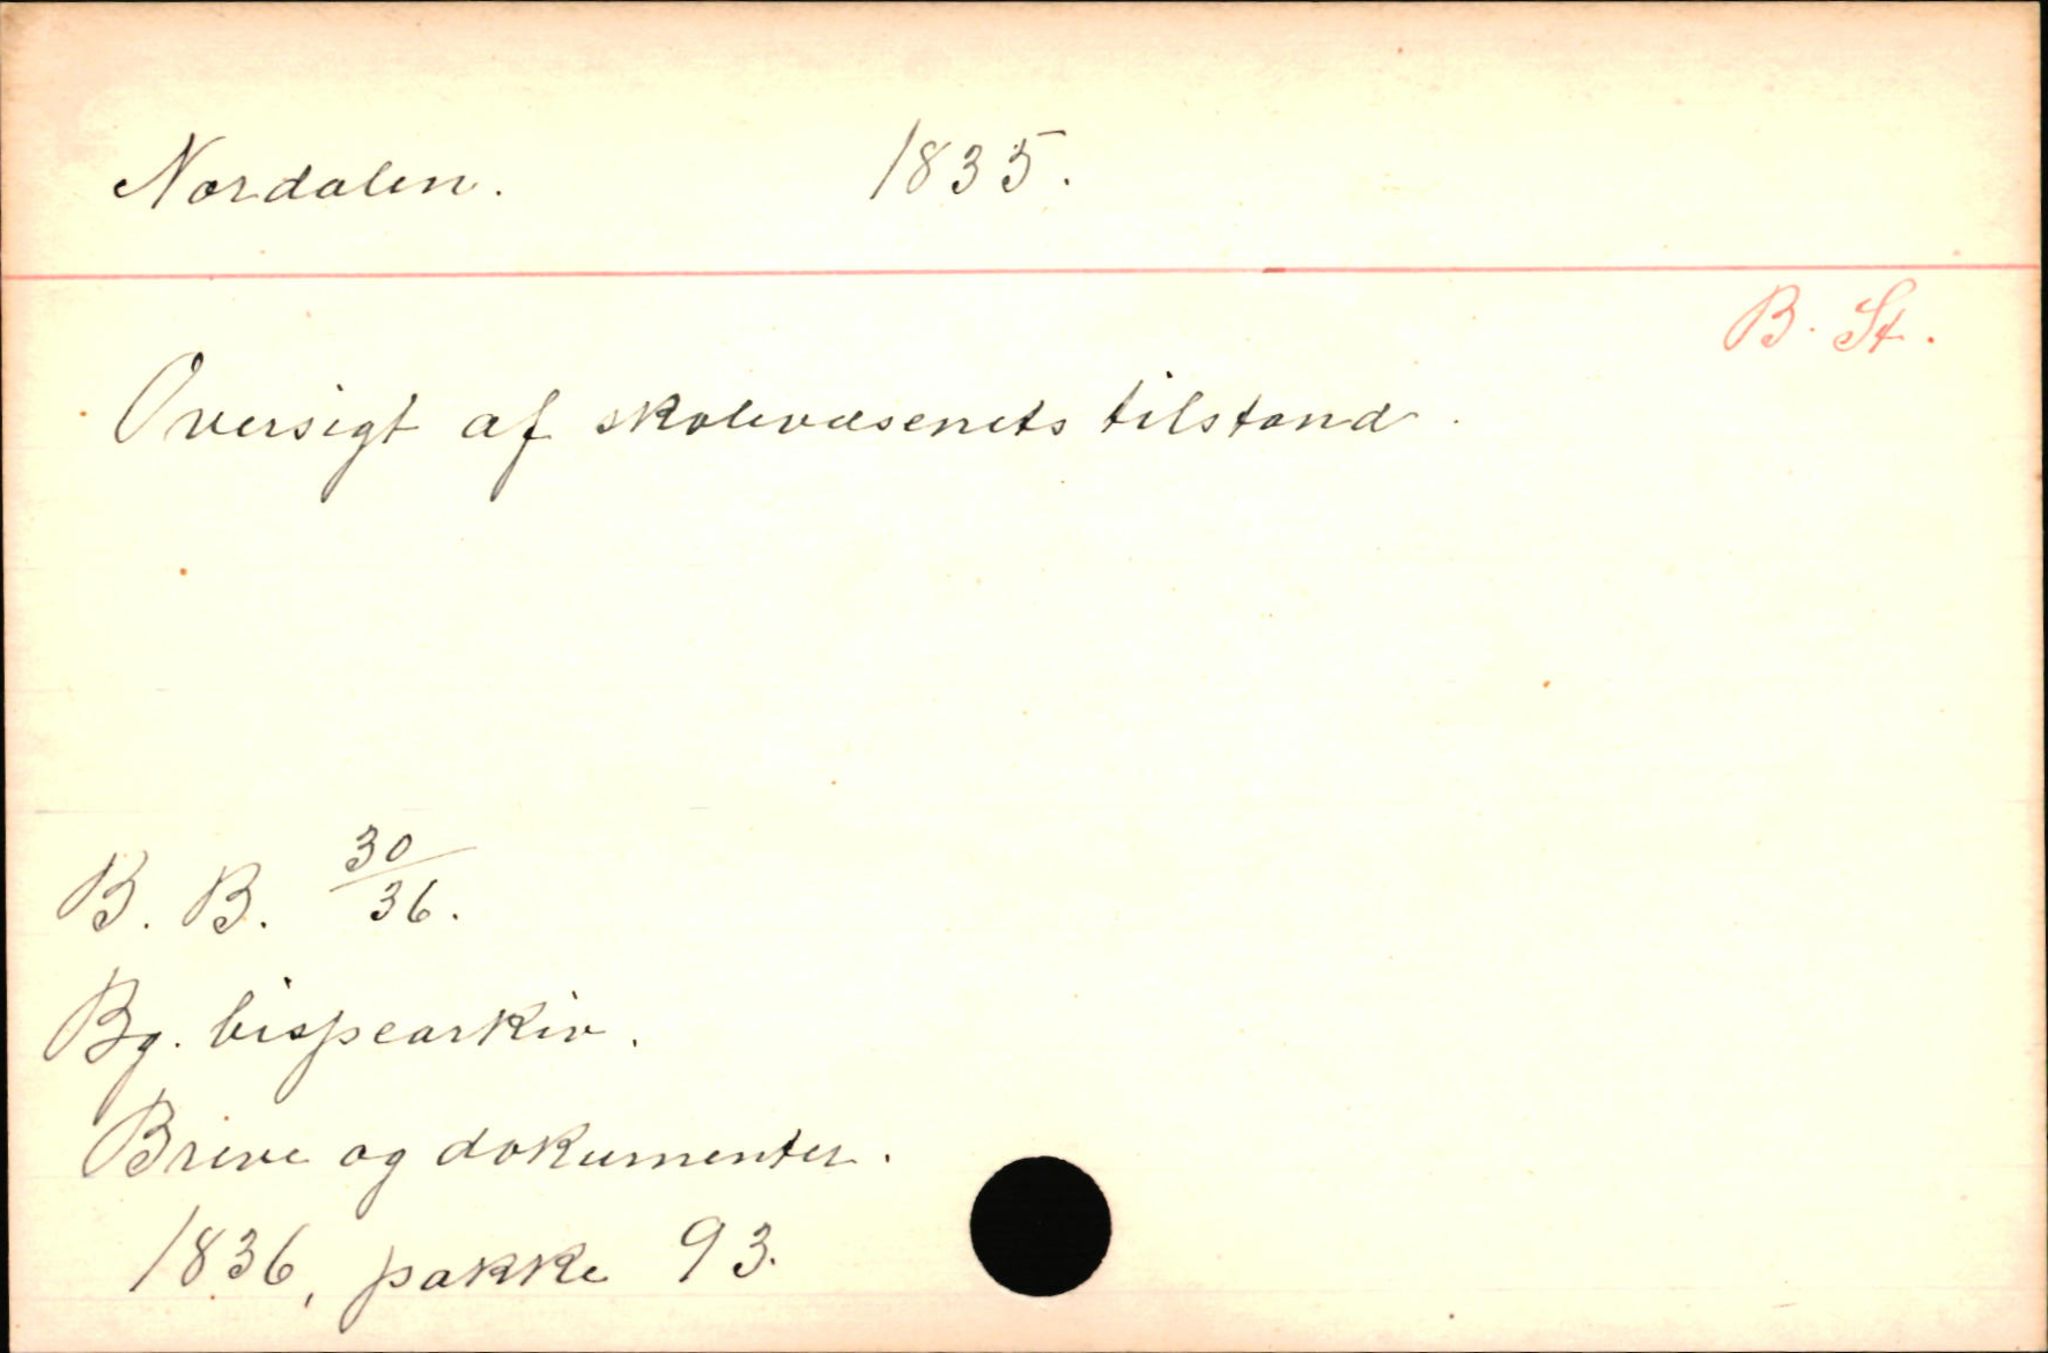 Nordalen. 1835.
B. St.
Oversigt af skolevæsenets tilstand.
B. B. 30/36.
Bg. bispearkiv.
Breve og dokumenter.
1836, pakke 93.